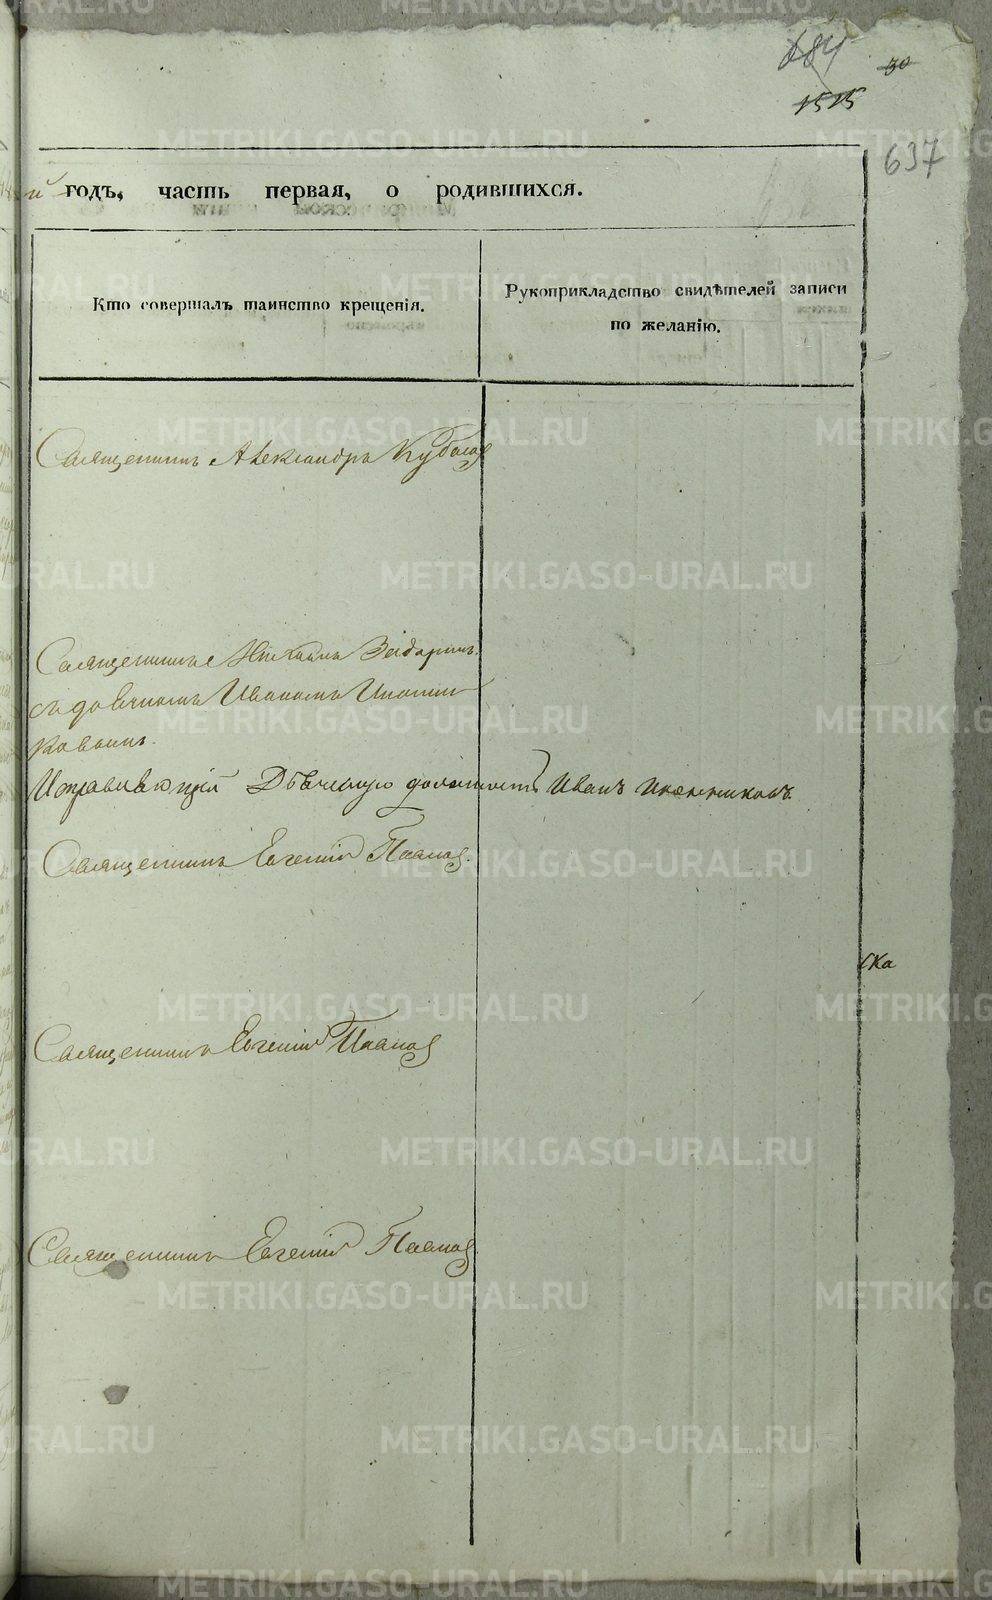 684
30
1515
637
й годъ, часть первая, о родившихся.
Кто совершалъ таинство крещенія.
Рукоприкладство свидѣтелей записи
по желанію.
Священникъ Александръ Кубасов
Священникъ Михаилъ
съ дьячкомъ Иваномъ Иконни
ковымъ.
Исправляющій Дьяческую должность Иванъ Иконниковъ
Священникъ Евгеній Попов.
ска
Священникъ Евгеній Попов
Священникъ Евгеній Попов
METRIKI.GASO-URAL.RU